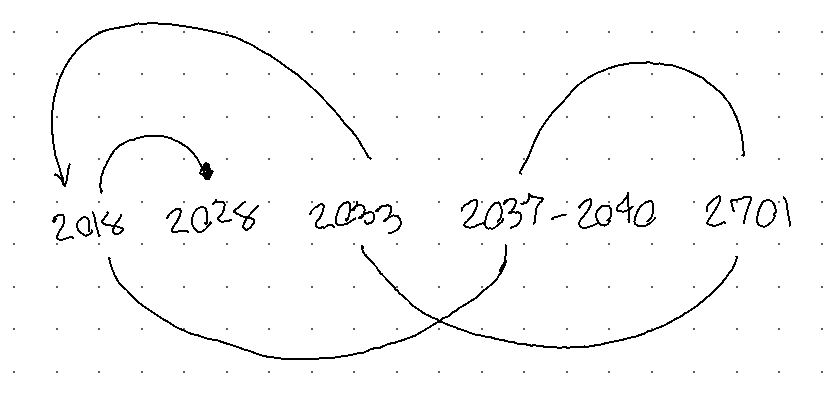 2018 2028 2033 2037-2040 2701